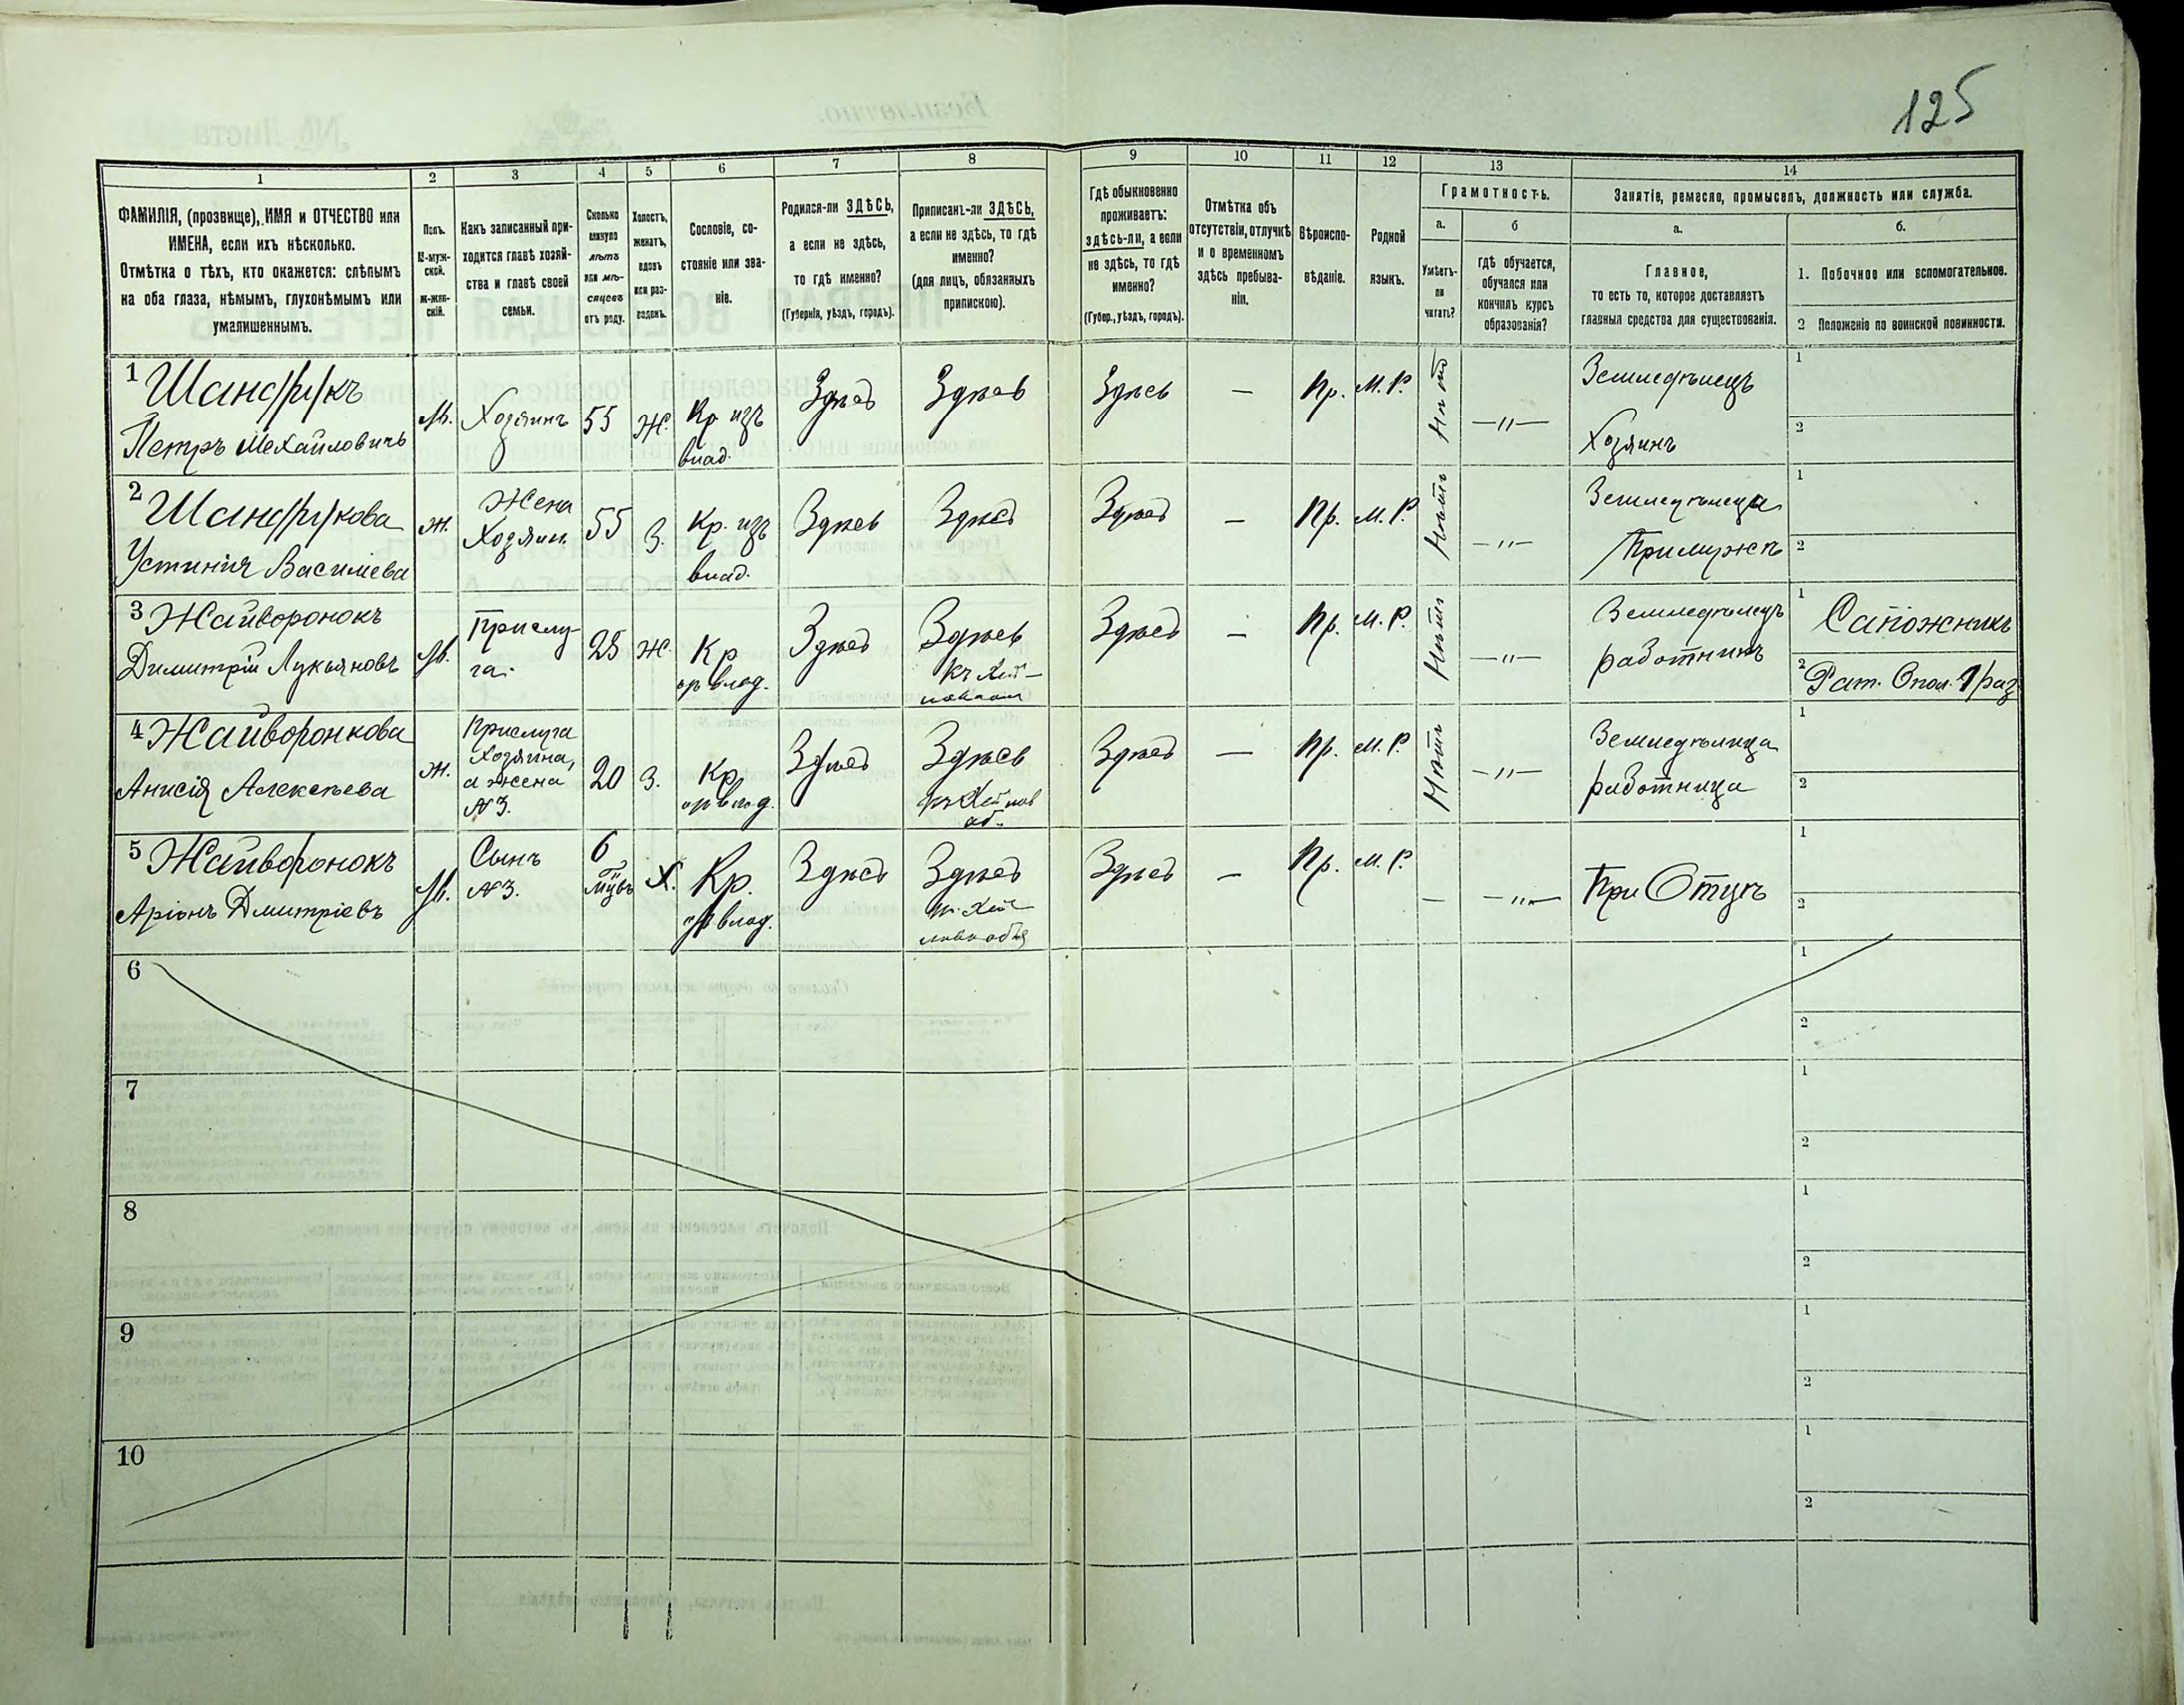 125
1
2
3
4
5
6
7
8
9
10
11
12
13
14
ФАМИЛІЯ, (прозвище), ИМЯ и ОТЧЕСТВО или
ИМЕНА, если ихъ нѣсколько.
Отмѣтка о тѣхъ, кто окажется: слѣпымъ
на оба глаза, нѣмымъ, глухонѣмымъ или
умалишеннымъ.
Полъ.
М-муж-
ской.
Ж-жен-
скій.
Какъ записанный при-
ходится главѣ хозяй-
ства и главѣ своей
семьи.
Сколько
минуло
лѣтъ
или мѣ-
сяцевъ
отъ роду.
Холостъ,
женатъ,
вдовъ
или раз-
веденъ.
Сословіе, со-
стояніе или зва-
ніе.
Родился-ли ЗДѢСЬ,
а если не здѣсь,
то гдѣ именно?
(Губернія, уѣздъ, городъ).
Приписанъ-ли ЗДѢСЬ,
а если не здѣсь, то гдѣ
именно?
(для лицъ, обязанныхъ
припискою).
Гдѣ обыкновенно
проживаетъ:
здѣсь-ли, а если
не здѣсь, то гдѣ
именно?
(Губер., уѣздъ, городъ).
Отмѣтка объ
отсутствіи, отлучкѣ
и о временномъ
здѣсь пребыва-
ніи.
Вѣроиспо-
вѣданіе.
Родной
языкъ.
Грамотность.
а.
б
Умѣетъ-
ли
читать?
гдѣ обучается,
обучался или
кончилъ курсъ
образованія?
Занятіе, ремесло, промыселъ, должность или служба.
а.
б.
Главное,
то есть то, которое доставляетъ
главныя средства для существованія.
1. Побочное или вспомогательное.
2 Положеніе по воинской повинности.
1
Петръ Михайловичъ
М.
Хозяинъ
55
Ж.
Кр изъ
влад.
Здѣсь
Здѣсь
Здѣсь
—
Пр.
М. Р.
Нѣтъ
—„—
Земледѣлецъ
Хозяинъ
1
2
2
Устинія Василіева
Ж.
Жена
Хозяин.
55
З.
Кр. изъ
влад.
Здѣсь
Здѣсь
Здѣсь
—
Пр.
М. Р.
Нѣтъ
—„—
Земледѣлеца
При мужѣ
1
2
3 Жайворонокъ
Димитрій Лукьяновъ
М.
Прислу-
га.
25
Ж.
Кр
влад.
Здѣсь
Здѣсь
Здѣсь
—
Пр.
М. Р.
Нѣтъ
—„—
Земледѣлецъ
работникъ
1 Сапожникъ
2 Рат. Опол. 1 раз
4 Жайворонкова
Анисія Алексѣева
Ж.
Прислуга
Хозяина,
а жена
№3.
20
З.
Кр
влад.
Здѣсь
Здѣсь
Здѣсь
—
Пр.
М. Р.
Нѣтъ
—„—
Земледѣлица
работница
1
2
5 Жайворонокъ
Аріонъ Дмитріевъ
М.
Сынъ
№3.
6
Х.
Кр.
влад.
Здѣсь
Здѣсь
Здѣсь
—
Пр.
М. Р.
—
—„—
При Отцѣ
1
2
6
1
2
7
1
2
8
1
2
9
1
2
10
1
2